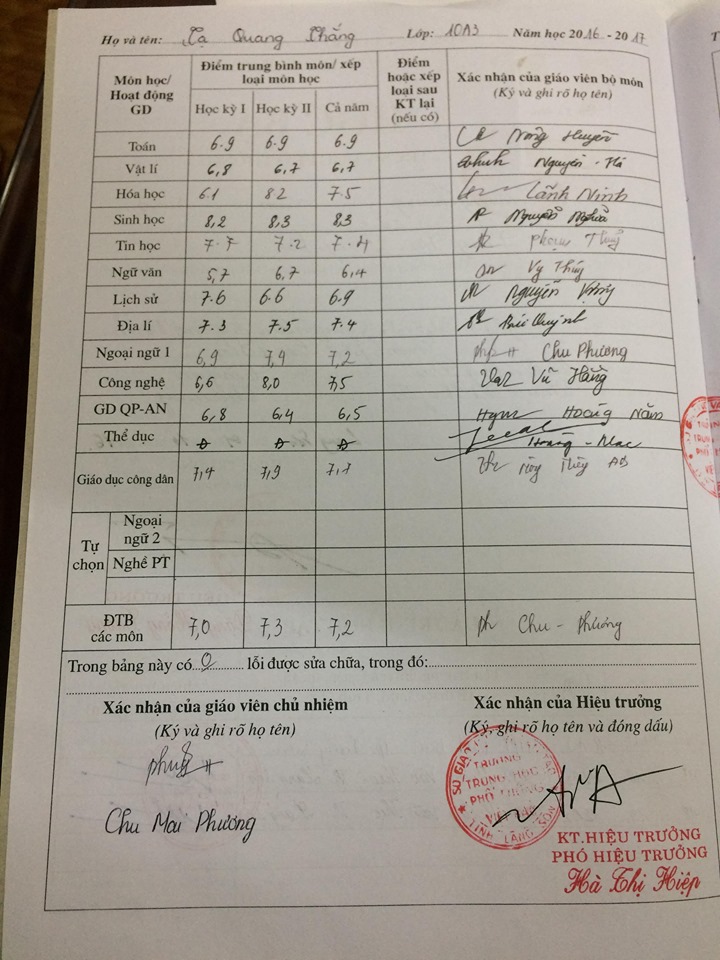 Họ và tên: Tạ Quang Thắng Lớp: 10A3 Năm học 2016 - 2017
Môn học/ Hoạt động GD Điểm trung bình môn/ xếp loại môn học Điểm hoặc xếp loại sau KT lại (nếu có) Xác nhận của giáo viên bộ môn (Ký và ghi rõ họ tên)
Học kỳ I Học kỳ II Cả năm
Toán 6.9 6.9 6.9 Nông Huyền
Vật lí 6,8 6,7 6,7 Nguyễn Hà
Hóa học 6.1 8.2 7.5 Lãnh Ninh
Sinh học 8,2 8,3 8,3 Nguyễn Nghĩa
Tin học 7.7 7.2 7.4 Phạm
Ngữ văn 5,7 6,7 6,4 Vy Thúy
Lịch sử 7.6 6.6 6.9 Nguyễn
Địa lí 7.3 7.5 7.4 Quỳnh
Ngoại ngữ 1 6,9 7,4 7,2 Chu Phương
Công nghệ 6,6 8,0 7,5 Vũ Hằng
GD QP-AN 6,8 6,4 6,5 Hoàng Năm
Thể dục Đ Đ Đ Hoàng
Giáo dục công dân 7,4 7,9 7,7
Tự chọn
Ngoại ngữ 2
Nghề PT
ĐTB các môn 7,0 7,3 7,2 Chu - Phương
Trong bảng này có 0 lỗi được sửa chữa, trong đó:
Xác nhận của giáo viên chủ nhiệm Xác nhận của Hiệu trưởng
(Ký và ghi rõ họ tên) (Ký, ghi rõ họ tên và đóng dấu)
TRƯỜNG
TRUNG HỌC
PHỔ THÔNG
TỈNH LẠNG SƠN
Chu Mai Phương
KT.HIỆU TRƯỞNG
PHÓ HIỆU TRƯỞNG
Hà Thị Hiệp